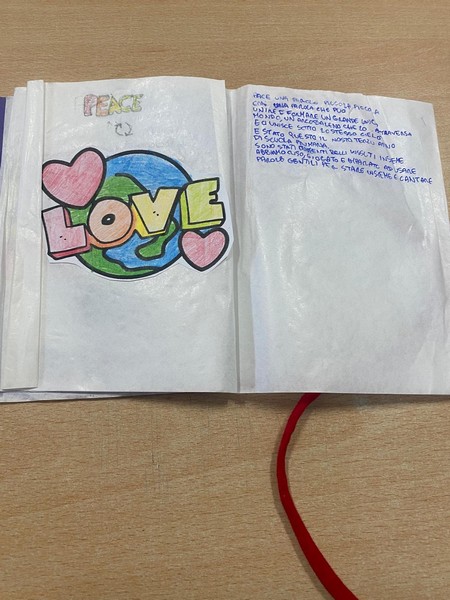 PEACE
LOVE
PACE UNA PAROLA PICCOLA, PICCOLA
CON UNA PAROLA CHE PUÒ
UNIRE E FORMARE UN GRANDE
MONDO, UN ARCOBALENO CHE LO ATTRAVERSA
E CI UNISCE SOTTO LO STESSO CIELO.
E STATO QUESTO IL NOSTRO TERZO ANNO
DI SCUOLA PRIMARIA.
SONO STATI MOMENTI BELLI VISSUTI INSIEME
ABBIAMO RISO, GIOCATO E IMPARATO AD USARE
PAROLE GENTILI PER STARE INSIEME E CANTARE